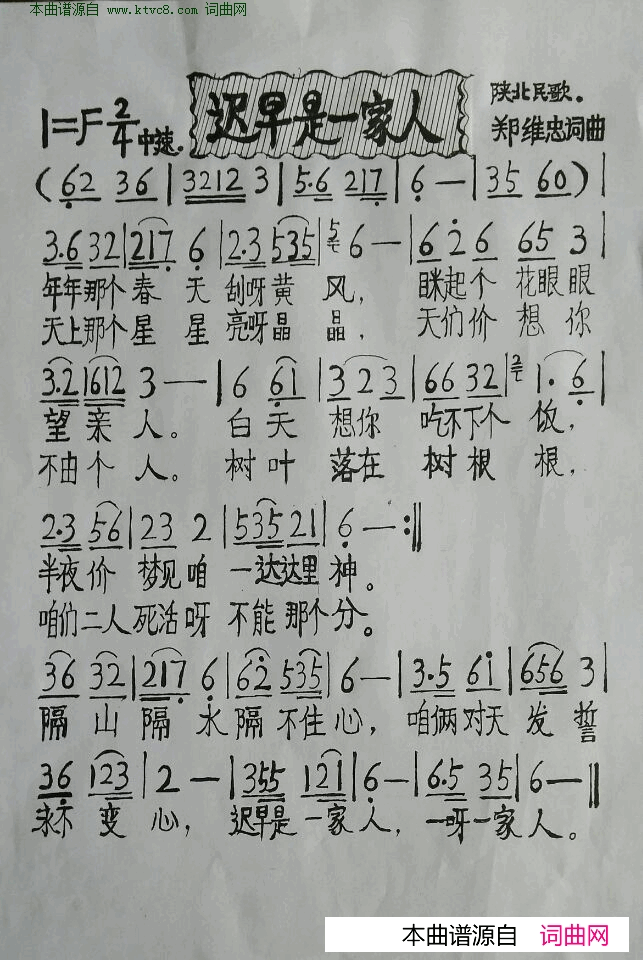 本曲谱源自 www.ktvc8.com 词曲网
陕北民歌。
1=F 2/4 中速. 迟早是一家人 郑维忠词曲
(62 36 | 3212 3 | 5·6 217 | 6 — | 35 60) |
3·6 32 | 217 6 | 2·3 535 | 5 6 — | 626 65 3 |
年年那个春天刮呀黄风, 眯起个花眼眼
天上那个星星亮呀晶晶, 天们价想你
3·2 1612 3 — | 6 61 | 323 | 66 32 | 2 1·6 |
望亲人。白天想你吃不下个饭,
不由个人。树叶落在树根根,
2·3 56 | 23 2 | 535 21 | 6 — :||
半夜价梦见咱一达达里神。
咱们二人死活呀不能那个分。
36 32 | 217 6 | 62 535 | 6 — | 3·5 61 | 656 3 |
隔山隔水隔不住心, 咱俩对天发誓
36 123 | 2 — | 355 121 | 6 — | 6·5 35 | 6 — ||
永不变心, 迟早是一家人, 一呀一家人。
本曲谱源自 词曲网